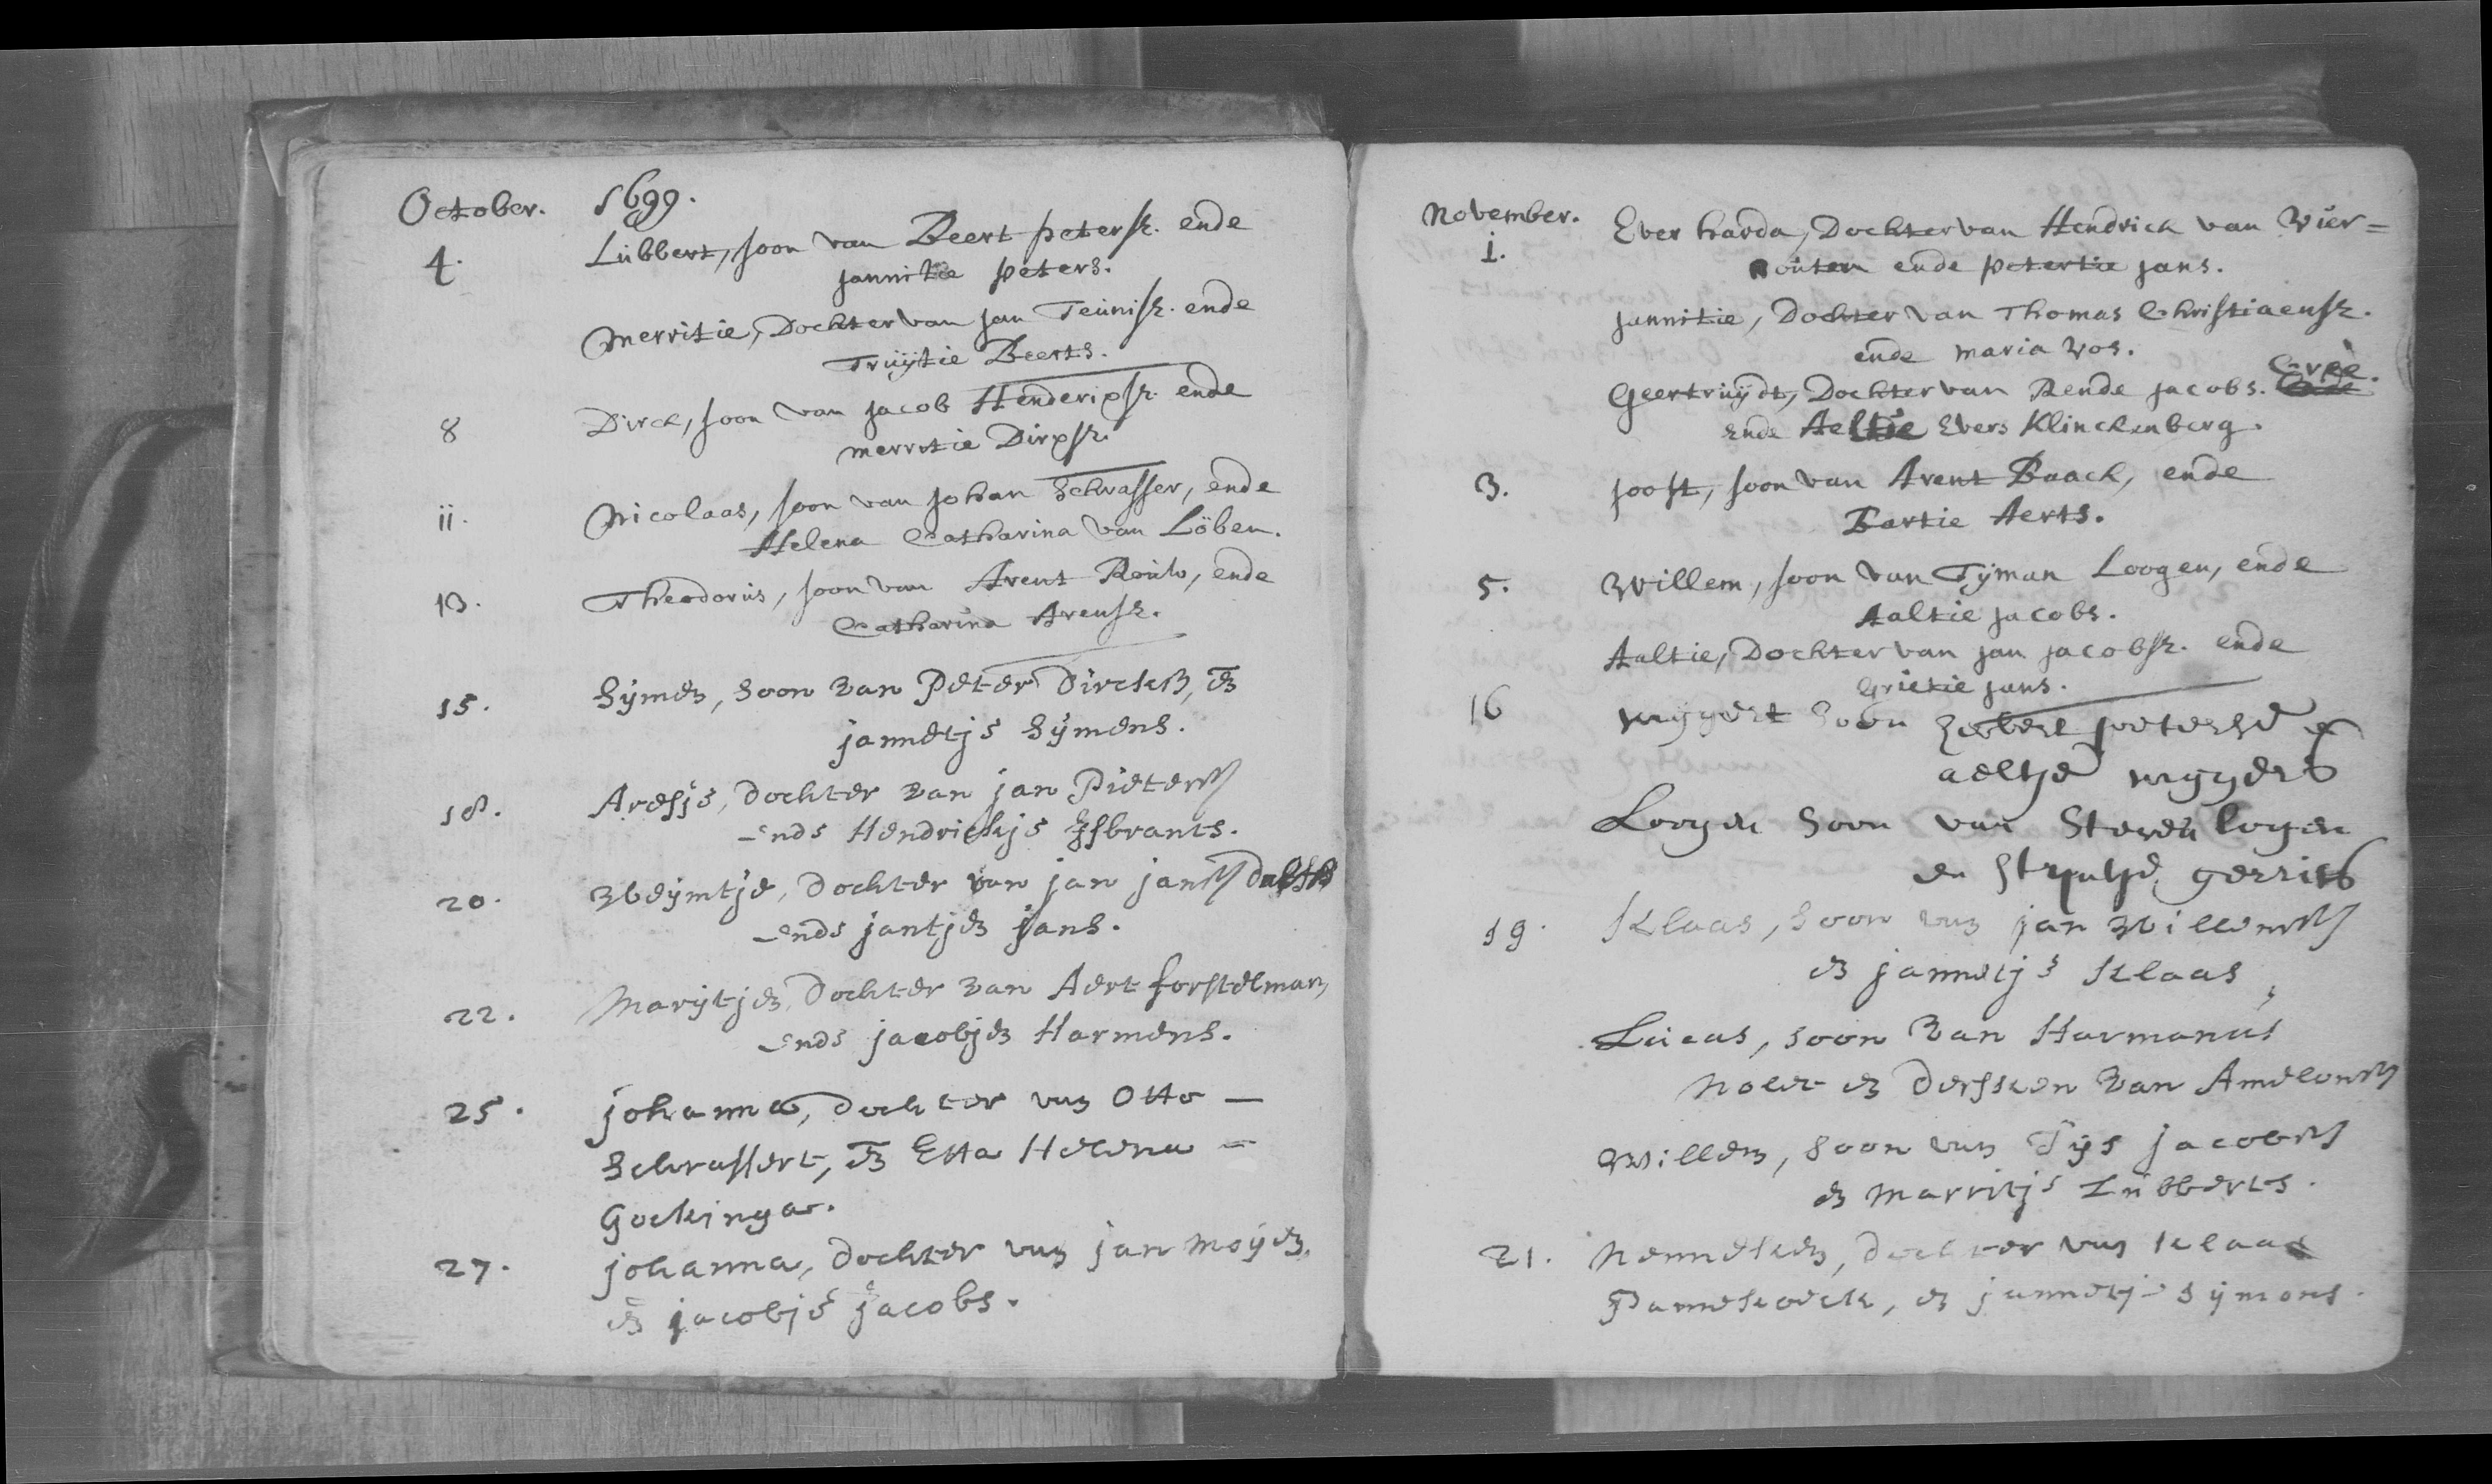 October. 1699.
4. Lübbert, soon van Beert petersz. ende
jannitie peters.
Merritie, Dochter van jan Teünisz. ende
Trüÿtie Beerts.
8 Dirck, soon van jacob Henderixsz. ende
merritie Dirxsz.
ii. Nicolaas, soon van johan Schrasser, ende
Helena Catharina van Löben.
13. Theodorüs, soon van Arent ende
Catharina Arensz.
15. Sÿmen, Soon van Peter Dircksz, en
jannetje Sÿmens.
18. Aresje, Dochter van jan Pieters
ende Hendrickje Isbrants.
20. Weijmtje, Dochter van jan jans
ende jantjen jans.
22. Marijtjen, Dochter van Aert forstelman,
ende jacobjen Harmens.
25. johanna, Dochter van Otto —
Schrassert, en Etta Helena —
Gockinga.
27. johanna, Dochter van jan Moijen,
en jacobje jacobs.
November.
1. Everharda, Dochter van Hendrick van Wer=
ende petertie jans.
jannitie, Dochter van Thomas Christiaensz.
ende maria Vos.
Geertruÿdt, Dochter van Rende jacobs.
ende Aeltie Evers Klinckenberg.
3. joost, soon van Arent Baack, ende
Bartie Aerts.
5. Willem, soon van Tÿman Loogen, ende
Aaltie jacobs.
Aaltie, Dochter van jan jacobsz. ende
Grietie jans.
16 wijgert Soon
aeltje wijgers
Loogen Soon van Steven logen
en gerrits
19. Klaas, Soon van jan Willems
en jannetje Klaas,
Lücas, soon van Harmanus
en van
Willem, Soon van Tijs jacobs
en Marritje Lübberts.
21. Dochter van Klaas
Pannekoeck, en jannetje Sijmons.